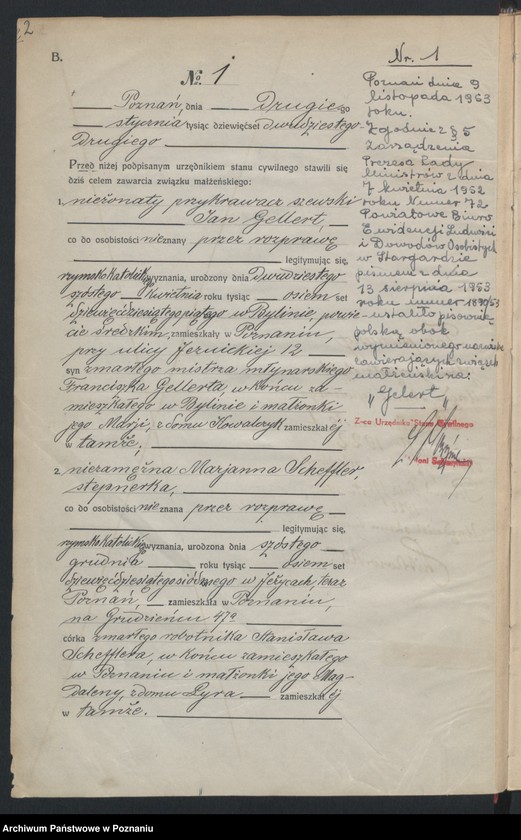 2
B.
No. 1
Poznań, dnia Drugiego
stycznia tysiąc dziewięćset dwudziestego
Drugiego
Przed niżej podpisanym urzędnikiem stanu cywilnego stawili się
dziś celem zawarcia związku małżeńskiego:
1. nieżonaty przykrawacz szewski
Jan Gellert,
co do osobistości nieznany przez rozprawę
legitymując się,
rzymskokatolick. wyznania, urodzony dnia Dwudziestego
szóstego kwietnia roku tysiąc ośiem set
dziewięćdziesiątego piątego w Bylinie, powie-
cie Średzkim, zamieszkały w Poznaniu,
przy ulicy 12
syn zmarłego mistrza młynarskiego
Franciszka Gellerta w końcu za-
mieszkałego w Bylinie i małżonki
jego Marji, z domu Kowalczyk zamieszkałéj
w tamże,
2. niezamężna Marjanna Scheffler,
stepnerka,
co do osobistości nieznana przez rozprawę
legitymując się,
rzymskokatolick. wyznania, urodzona dnia szóstego
grudnia roku tysiąc ośiem set
dziewięćdziesiątego siódmego w Jeżycach teraz
Poznań, zamieszkała w Poznaniu,
na Grudzieńcu 47a
córka zmarłego robotnika Stanisława
Schefflera, w końcu zamieszkałego
w Poznaniu i małżonki jego Mag-
daleny, z domu Pyra zamieszkałéj
w tamże.
Nr. 1
Poznań dnia 9
listopada 1963
roku.
Zgodnie z § 5
Zarządzenia
Prezesa Rady
Ministrów z dnia
7 kwietnia 1952
roku Numer 72
Powiatowe Biuro
Ewidencji Ludności
i Dowodów Osobistych
w Stargardzie
pismem z dnia
13 sierpnia 1963
roku numer 1890/63
ustaliło pisownię
polską obok
wymienionego nazwiska
zawierającego związek
małżeński na:
"Gelert"
Z-ca Urzędnika Stanu Cywilnego
Archiwum Państwowe w Poznaniu